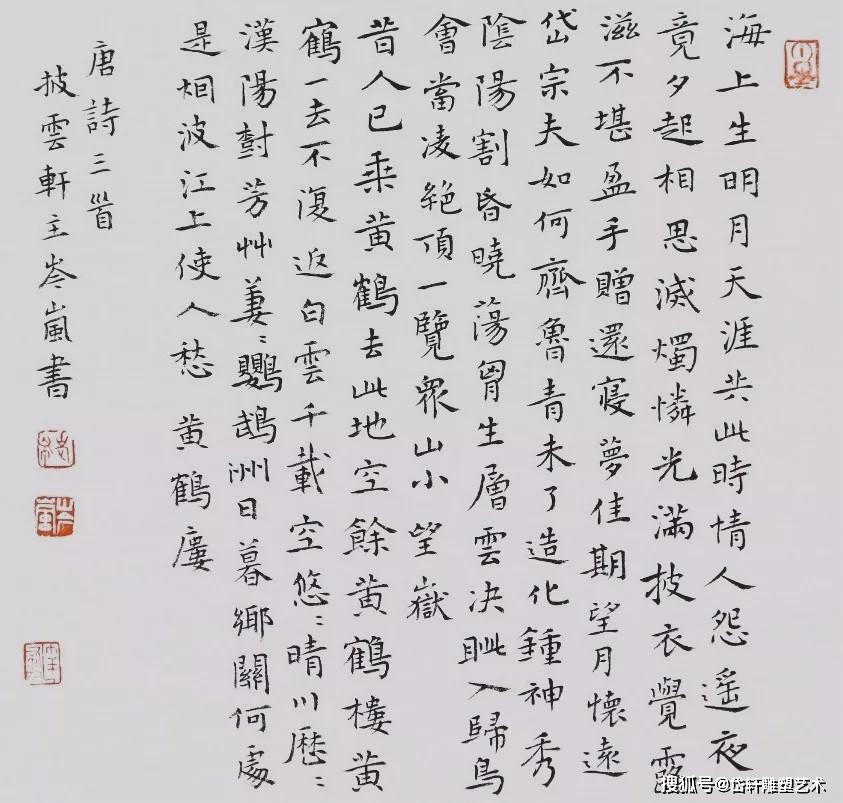 海上生明月天涯共此時情人怨遥夜
竟夕起相思滅燭憐光滿披衣覺露
滋不堪盈手贈還寝夢佳期望月懷遠
岱宗夫如何齊魯青未了造化鍾神秀
陰陽割昏曉蕩胷生層雲決眦入歸鳥
會當凌絶頂一覽眾山小望嶽
昔人已乘黄鶴去此地空餘黄鶴樓黄
鶴一去不復返白雲千載空悠〻晴川歷〻
漢陽樹芳艸萋〻鸚鵡洲日暮鄉關何處
是烟波江上使人愁 黄鶴廔
唐詩三首
披雲軒主岑嵐書
搜狐号@岱轩雕塑艺术